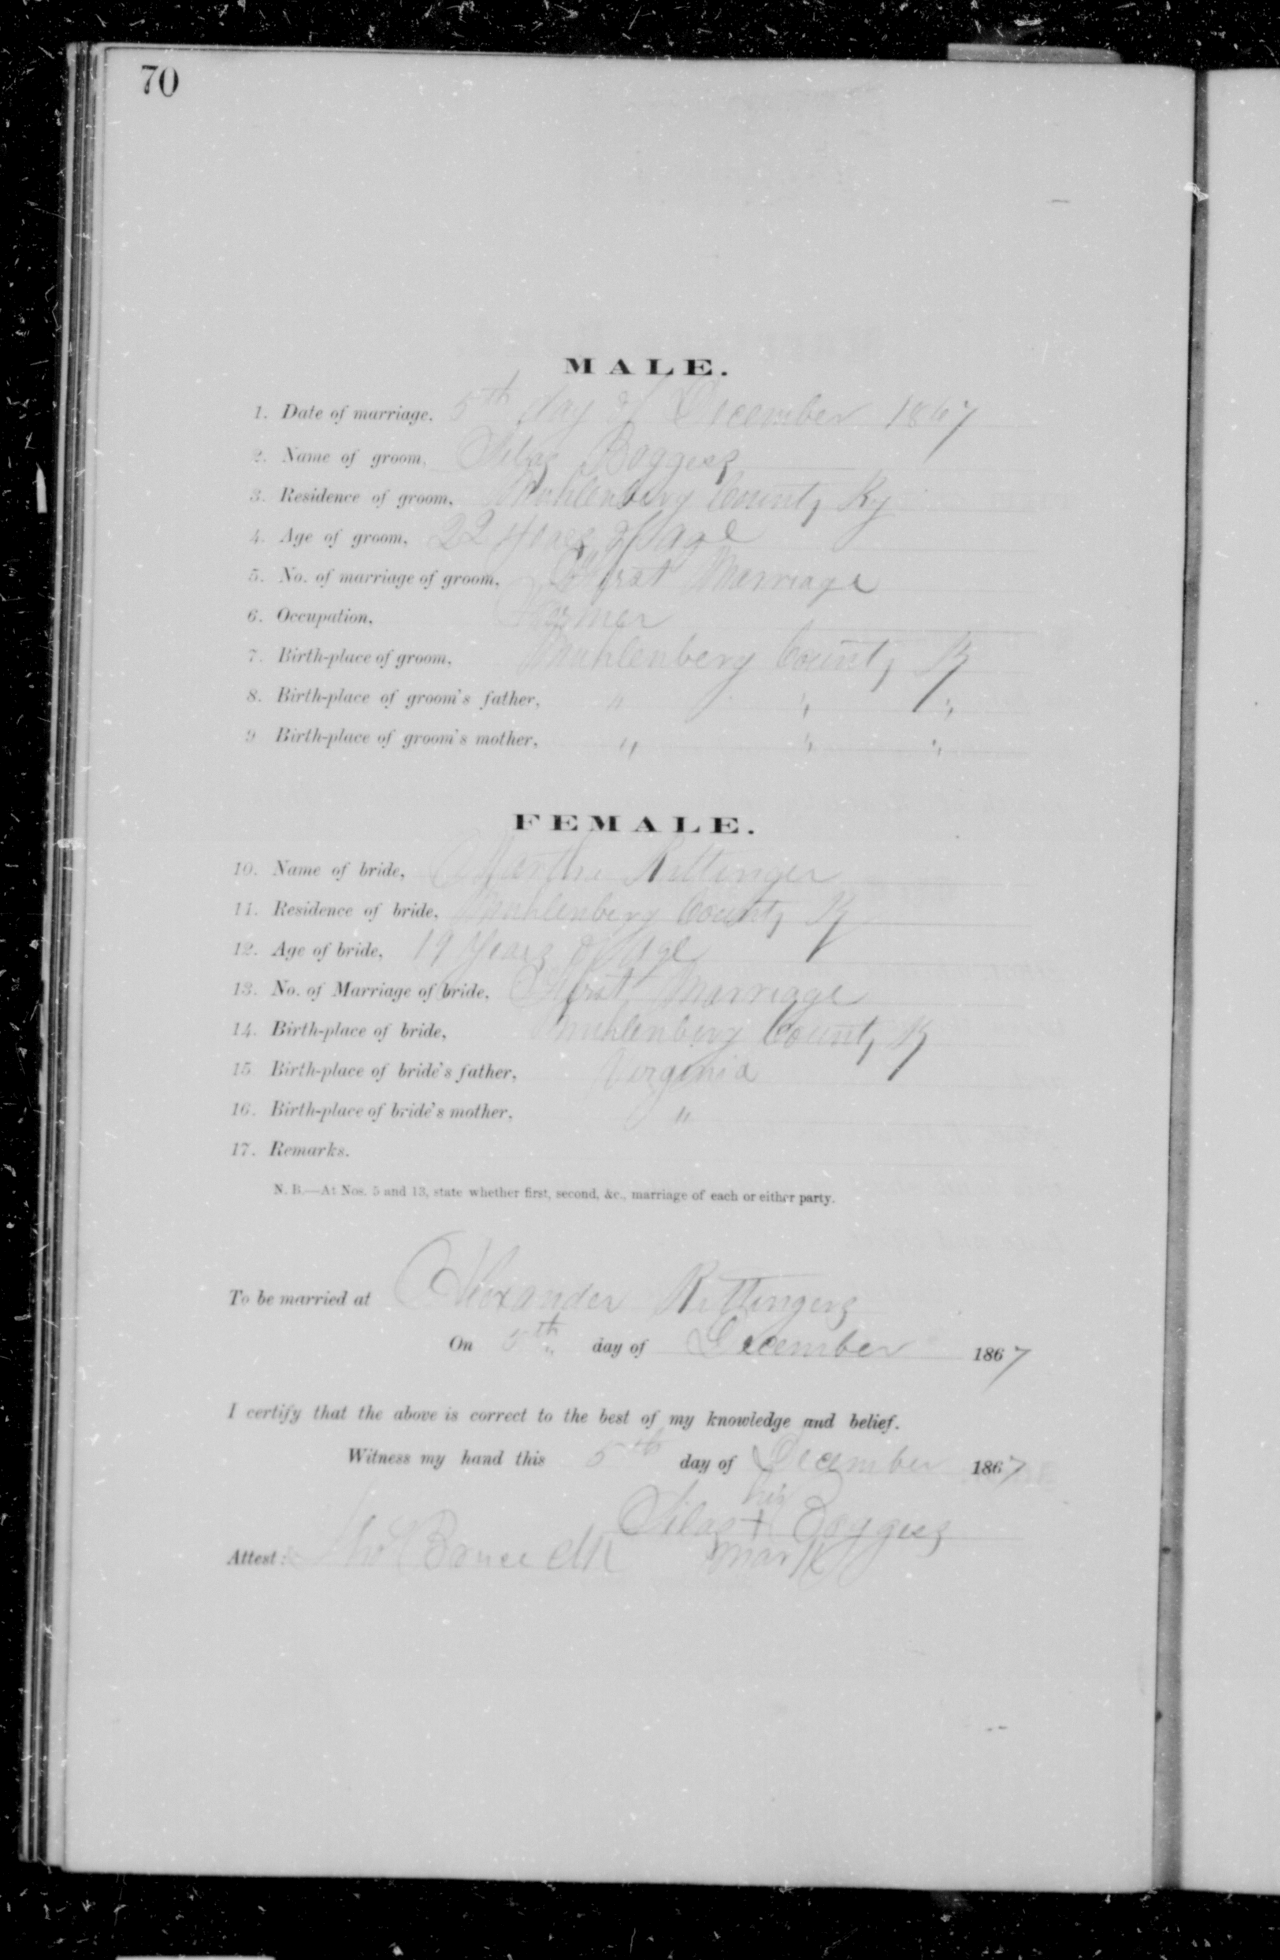 70
MALE.
1. Date of marriage, 5th day of December 1867
2. Name of groom, Silas Boggess
3. Residence of groom, Muhlenberg County Ky
4. Age of groom, 22 years of age
5. No. of marriage of groom, First Marriage
6. Occupation, Farmer
7. Birth-place of groom, Muhlenberg County Ky
8. Birth-place of groom's father, " " "
9 Birth-place of groom's mother, " " "
FEMALE.
10. Name of bride, Martha Rittinger
11. Residence of bride, Muhlenberg County Ky
12. Age of bride, 19 Years of Age
13. No. of Marriage of bride, First Marriage
14. Birth-place of bride, Muhlenberg County Ky
15 Birth-place of bride's father, Virginia
16. Birth-place of bride's mother, "
17. Remarks.
N. B.—At Nos. 5 and 13, state whether first, second, &c., marriage of each or either party.
To be married at Alexander Rittingers
On 5th day of December 1867
I certify that the above is correct to the best of my knowledge and belief.
Witness my hand this 5th day of December 1867
his
Silas + Boggess
mark
Attest: Bruce Clk